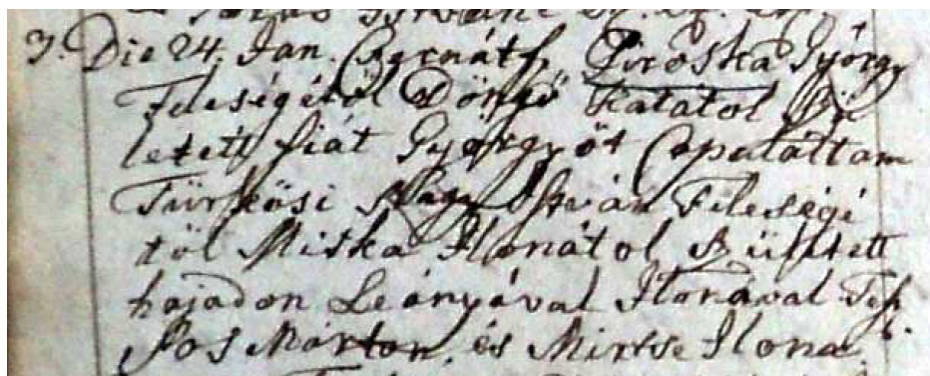 3. Die 24. Jan. Csernátf. Piroska György
Feleségétöl Döngö Katatol Szü
letett fiát Györgyöt Copulaltam
Türkösi Nagy István Feleségé
töl Miska Ilonátol Született
hajadon Leányával Ilonával Test.
Pos Márton, és Mirtse Ilona.